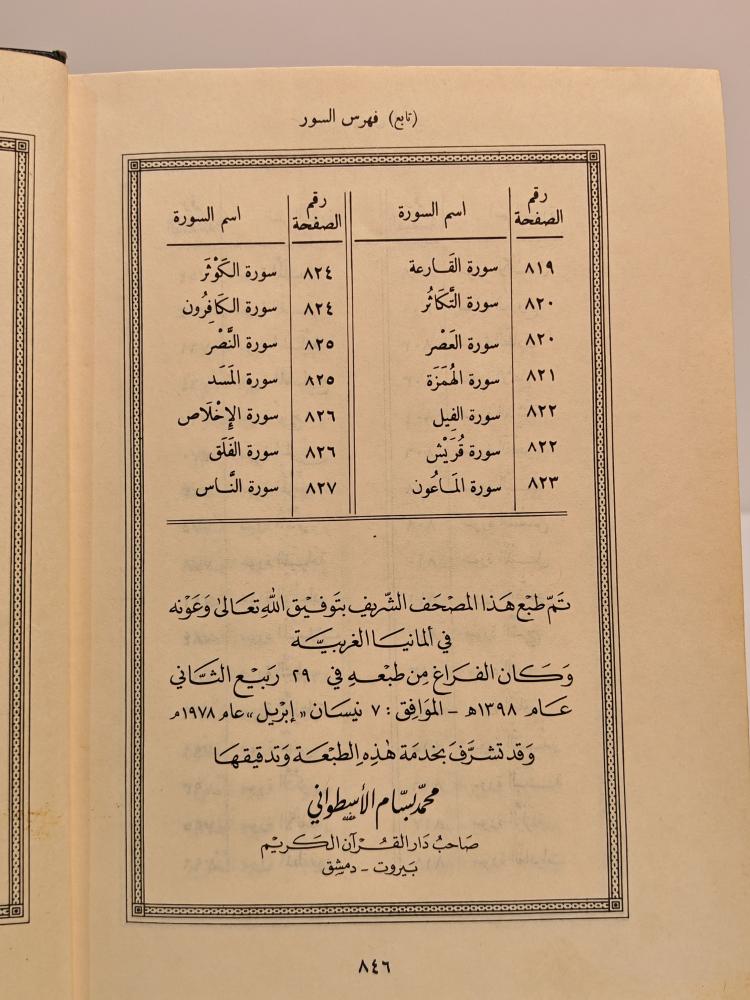 (تابع) فهرس السور
رقم الصفحة اسم السورة رقم الصفحة اسم السورة
٨١٩ سورة القَارعة ٨٢٤ سورة الكَوْثَر
٨٢٠ سورة التَّكَاثُر ٨٢٤ سورة الكَافِرُون
٨٢٠ سورة العَصْر ٨٢٥ سورة النَّصْر
٨٢١ سورة الهُمَزَة ٨٢٥ سورة المَسَد
٨٢٢ سورة الفِيل ٨٢٦ سورة الإِخْلَاص
٨٢٢ سورة قُرَيْش ٨٢٦ سورة الفَلَق
٨٢٣ سورة المَاعُون ٨٢٧ سورة النَّاس
تَمّ طبْع هٰذا المصْحَف الشّريف بتَوفيْق اللهِ تعَالىٰ وَعَونه
في ألمانيَا الغربيَّة
وَكان الفراغ مِن طبْعهِ في ٢٩ رَبيْع الثَّاني
عَام ١٣٩٨هـ - الموَافِق : ٧ نيْسَان «إبْريل» عَام ١٩٧٨م
وَقد تشرَّفَ بخدمَة هٰذِهِ الطبْعَة وَتدقيْقهَا
محمّد بسّام الأسطواني
صَاحبُ دَار القُرآن الكَريْم
بَيروت - دمَشق
٨٤٦